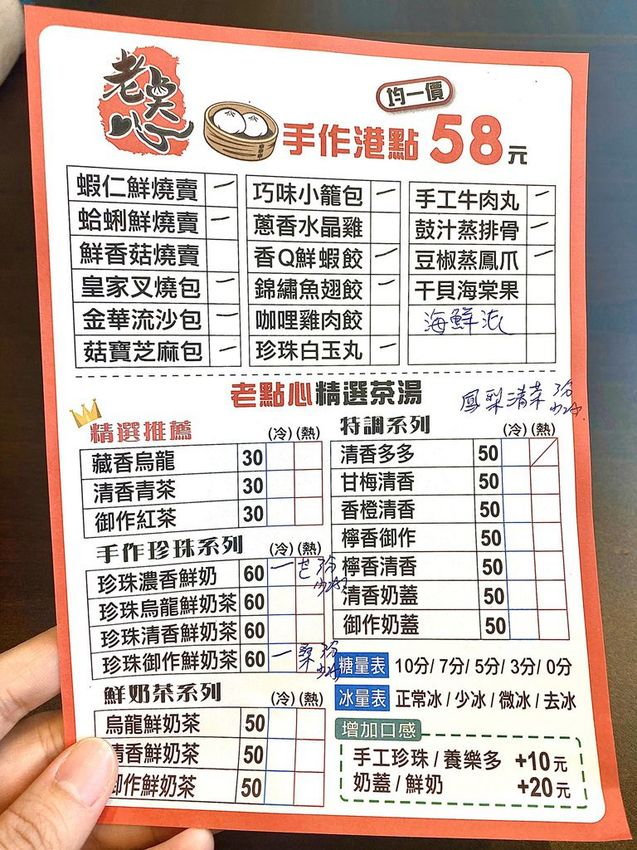 老點心
均一價
手作港點 58元
蝦仁鮮燒賣 一 巧味小籠包 一 手工牛肉丸 一
蛤蜊鮮燒賣 一 蔥香水晶雞 鼓汁蒸排骨 一
鮮香菇燒賣 香Q鮮蝦餃 一 豆椒蒸鳳爪 一
皇家叉燒包 一 錦繡魚翅餃 一 干貝海棠果
金華流沙包 一 咖哩雞肉餃 海鮮派
菇寶芝麻包 一 珍珠白玉丸 一
老點心精選茶湯
鳳梨清菜 3分
精選推薦 (冷) (熱)
藏香烏龍 30
清香青茶 30
御作紅茶 30
手作珍珠系列 (冷) (熱)
珍珠濃香鮮奶 60 一 3分
珍珠烏龍鮮奶茶 60
珍珠清香鮮奶茶 60
珍珠御作鮮奶茶 60 一 3分
鮮奶茶系列 (冷) (熱)
烏龍鮮奶茶 50
清香鮮奶茶 50
御作鮮奶茶 50
特調系列 (冷) (熱)
清香多多 50
甘梅清香 50
香橙清香 50
檸香御作 50
檸香清香 50
清香奶蓋 50
御作奶蓋 50
糖量表 10分/7分/5分/3分/0分
冰量表 正常冰/少冰/微冰/去冰
增加口感
手工珍珠/養樂多 +10元
奶蓋/鮮奶 +20元